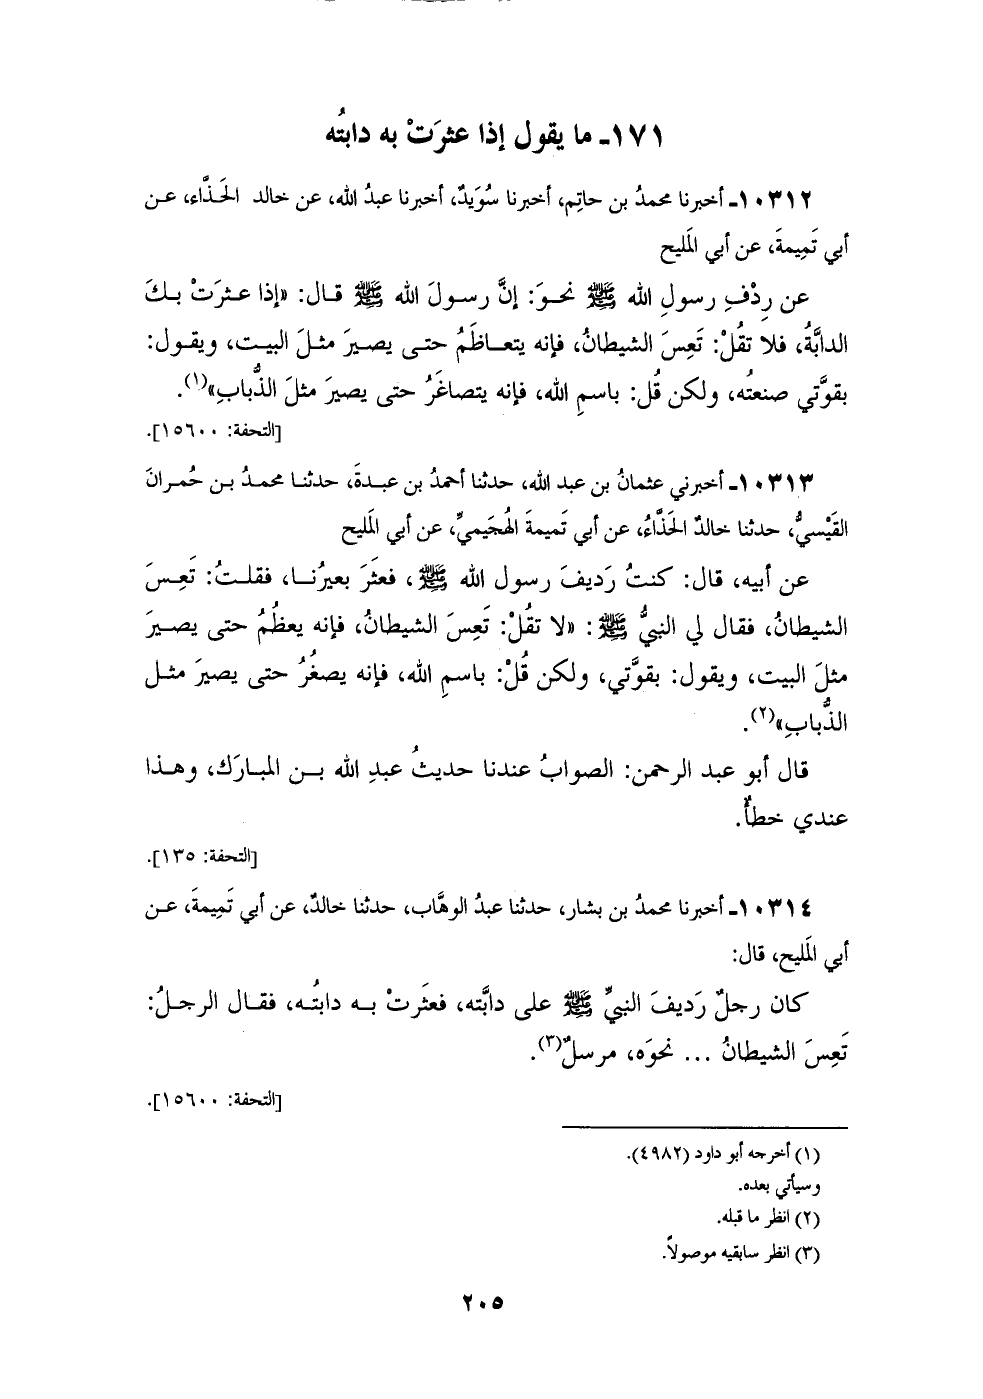 ١٧١ـ ما يقول إذا عثرَتْ به دابتُه
١٠٣١٢ـ أخبرنا محمدُ بن حاتِم، أخبرنا سُوَيدٌ، أخبرنا عبدُ الله، عن خالد الحَذَّاء، عن
أبي تَمِيمةَ، عن أبي المَليح
عن رِدْفِ رسولِ الله ﷺ نحوَ: إنَّ رسولَ الله ﷺ قال: «إذا عثرَتْ بكَ
الدابَّةُ، فلا تقُلْ: تَعِسَ الشيطانُ، فإنه يتعاظَمُ حتى يصيرَ مثلَ البيت، ويقول:
بقوَّتي صنعتُه، ولكن قُل: باسمِ الله، فإنه يتصاغَرُ حتى يصيرَ مثلَ الذُّبابِ»(١).
[التحفة: ١٥٦٠٠].
١٠٣١٣ـ أخبرني عثمانُ بن عبد الله، حدثنا أحمدُ بن عبدةَ، حدثنا محمدُ بن حُمرانَ
القَيْسيُّ، حدثنا خالدٌ الحَذَّاءُ، عن أبي تَميمةَ الهُجَيميِّ، عن أبي المَليح
عن أبيه، قال: كنتُ رَديفَ رسول الله ﷺ، فعثَرَ بعيرُنا، فقلتُ: تَعِسَ
الشيطانُ، فقال لي النبيُّ ﷺ: «لا تقُلْ: تَعِسَ الشيطانُ، فإنه يعظُمُ حتى يصيرَ
مثلَ البيت، ويقول: بقوَّتي، ولكن قُلْ: باسمِ الله، فإنه يصغُرُ حتى يصيرَ مثل
الذُّبابِ»(٢).
قال أبو عبد الرحمن: الصوابُ عندنا حديثُ عبدِ الله بن المبارَك، وهذا
عندي خطأٌ.
[التحفة: ١٣٥].
١٠٣١٤ـ أخبرنا محمدُ بن بشار، حدثنا عبدُ الوهَّاب، حدثنا خالدٌ، عن أبي تَمِيمةَ، عن
أبي المَليح، قال:
كان رجلٌ رَديفَ النبيِّ ﷺ على دابَّته، فعثَرتْ به دابتُه، فقال الرجلُ:
تَعِسَ الشيطانُ ... نحوَه، مرسلٌ(٣).
[التحفة: ١٥٦٠٠].
(١) أخرجه أبو داود (٤٩٨٢).
وسيأتي بعده.
(٢) انظر ما قبله.
(٣) انظر سابقيه موصولاً.
٢٠٥